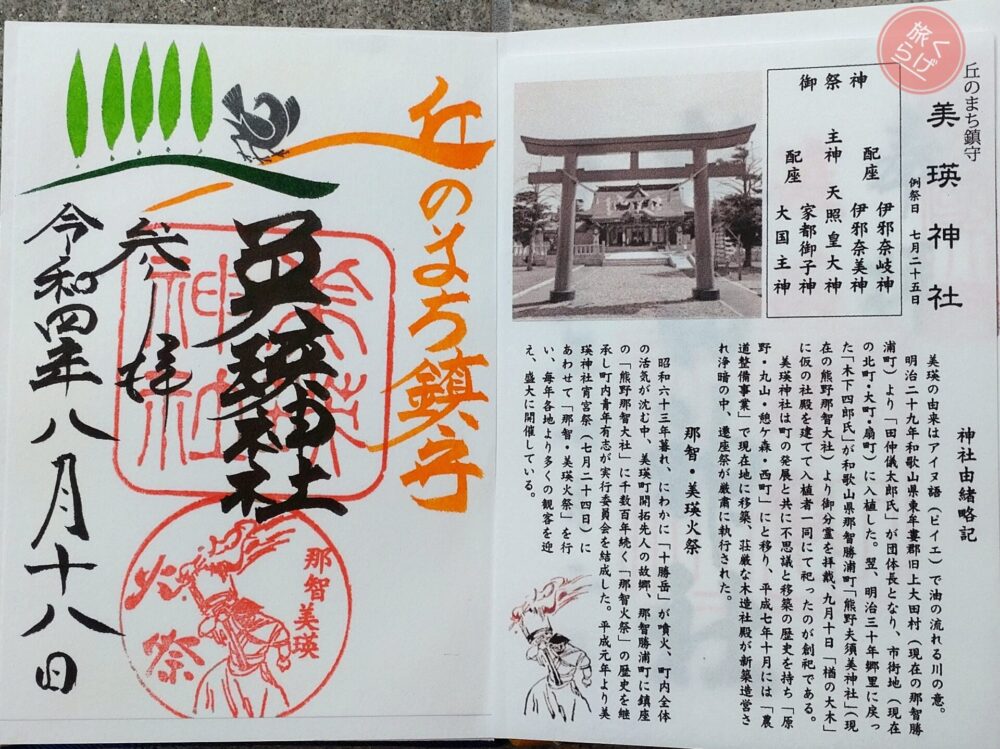 旅く
らげ
丘のまち鎮守
美瑛神社
例祭日 七月二十五日
御祭神
配座 伊邪奈岐神
伊邪奈美神
主神 天照皇大神
家都御子神
配座 大国主神
神社由緒略記
美瑛の由来はアイヌ語（ピイエ）で油の流れる川の意。
明治二十九年和歌山県東牟婁郡旧上大田村（現在の那智勝
浦町）より「田仲儀太郎氏」が団体長となり、市街地（現在
の北町・大町・扇町）に入植した。翌、明治三十年郷里に戻っ
た「木下四郎氏」が和歌山県那智勝浦町「熊野夫須美神社」（現
在の熊野那智大社）より御分霊を拝戴、九月十日「楢の大木」
に仮の社殿を建てて入植者一同にて祀ったのが創祀である。
美瑛神社は町の発展と共に不思議と移築の歴史を持ち「原
野・丸山・憩ケ森・西町」にと移り、平成七年十月には「農
道整備事業」で現在地に移築、荘厳な木造社殿が新築造営さ
れ浄暗の中、遷座祭が厳粛に執行された。
那智・美瑛火祭
昭和六十三年暮れ、にわかに「十勝岳」が噴火、町内全体
の活気が沈む中、美瑛町開拓先人の故郷、那智勝浦町に鎮座
の「熊野那智大社」に千数百年続く「那智火祭」の歴史を継
承し町内青年有志が実行委員会を結成した。平成元年より美
瑛神社宵宮祭（七月二十四日）に
あわせて「那智・美瑛火祭」を行
い、毎年各地より多くの観客を迎
え、盛大に開催している。
丘のまち鎮守
美瑛神社
美瑛
神社
那智美瑛
火祭
参拝
令和四年八月十八日